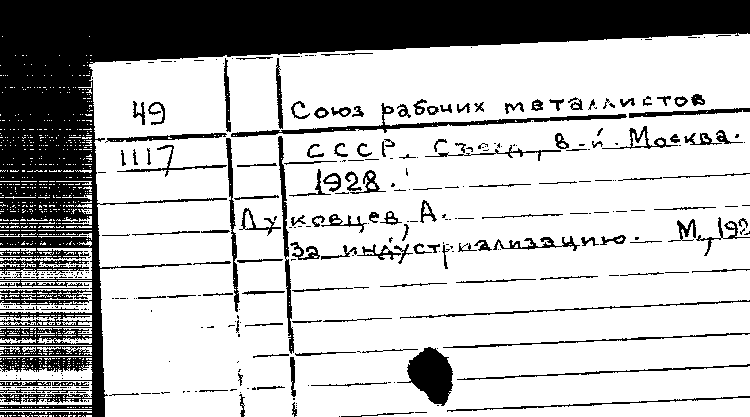 49 Союз рабочих металлистов
1117 СССР. Съезд, 8-й. Москва.
1928.
Луковцев, А.
За индустриализацию. М., 192